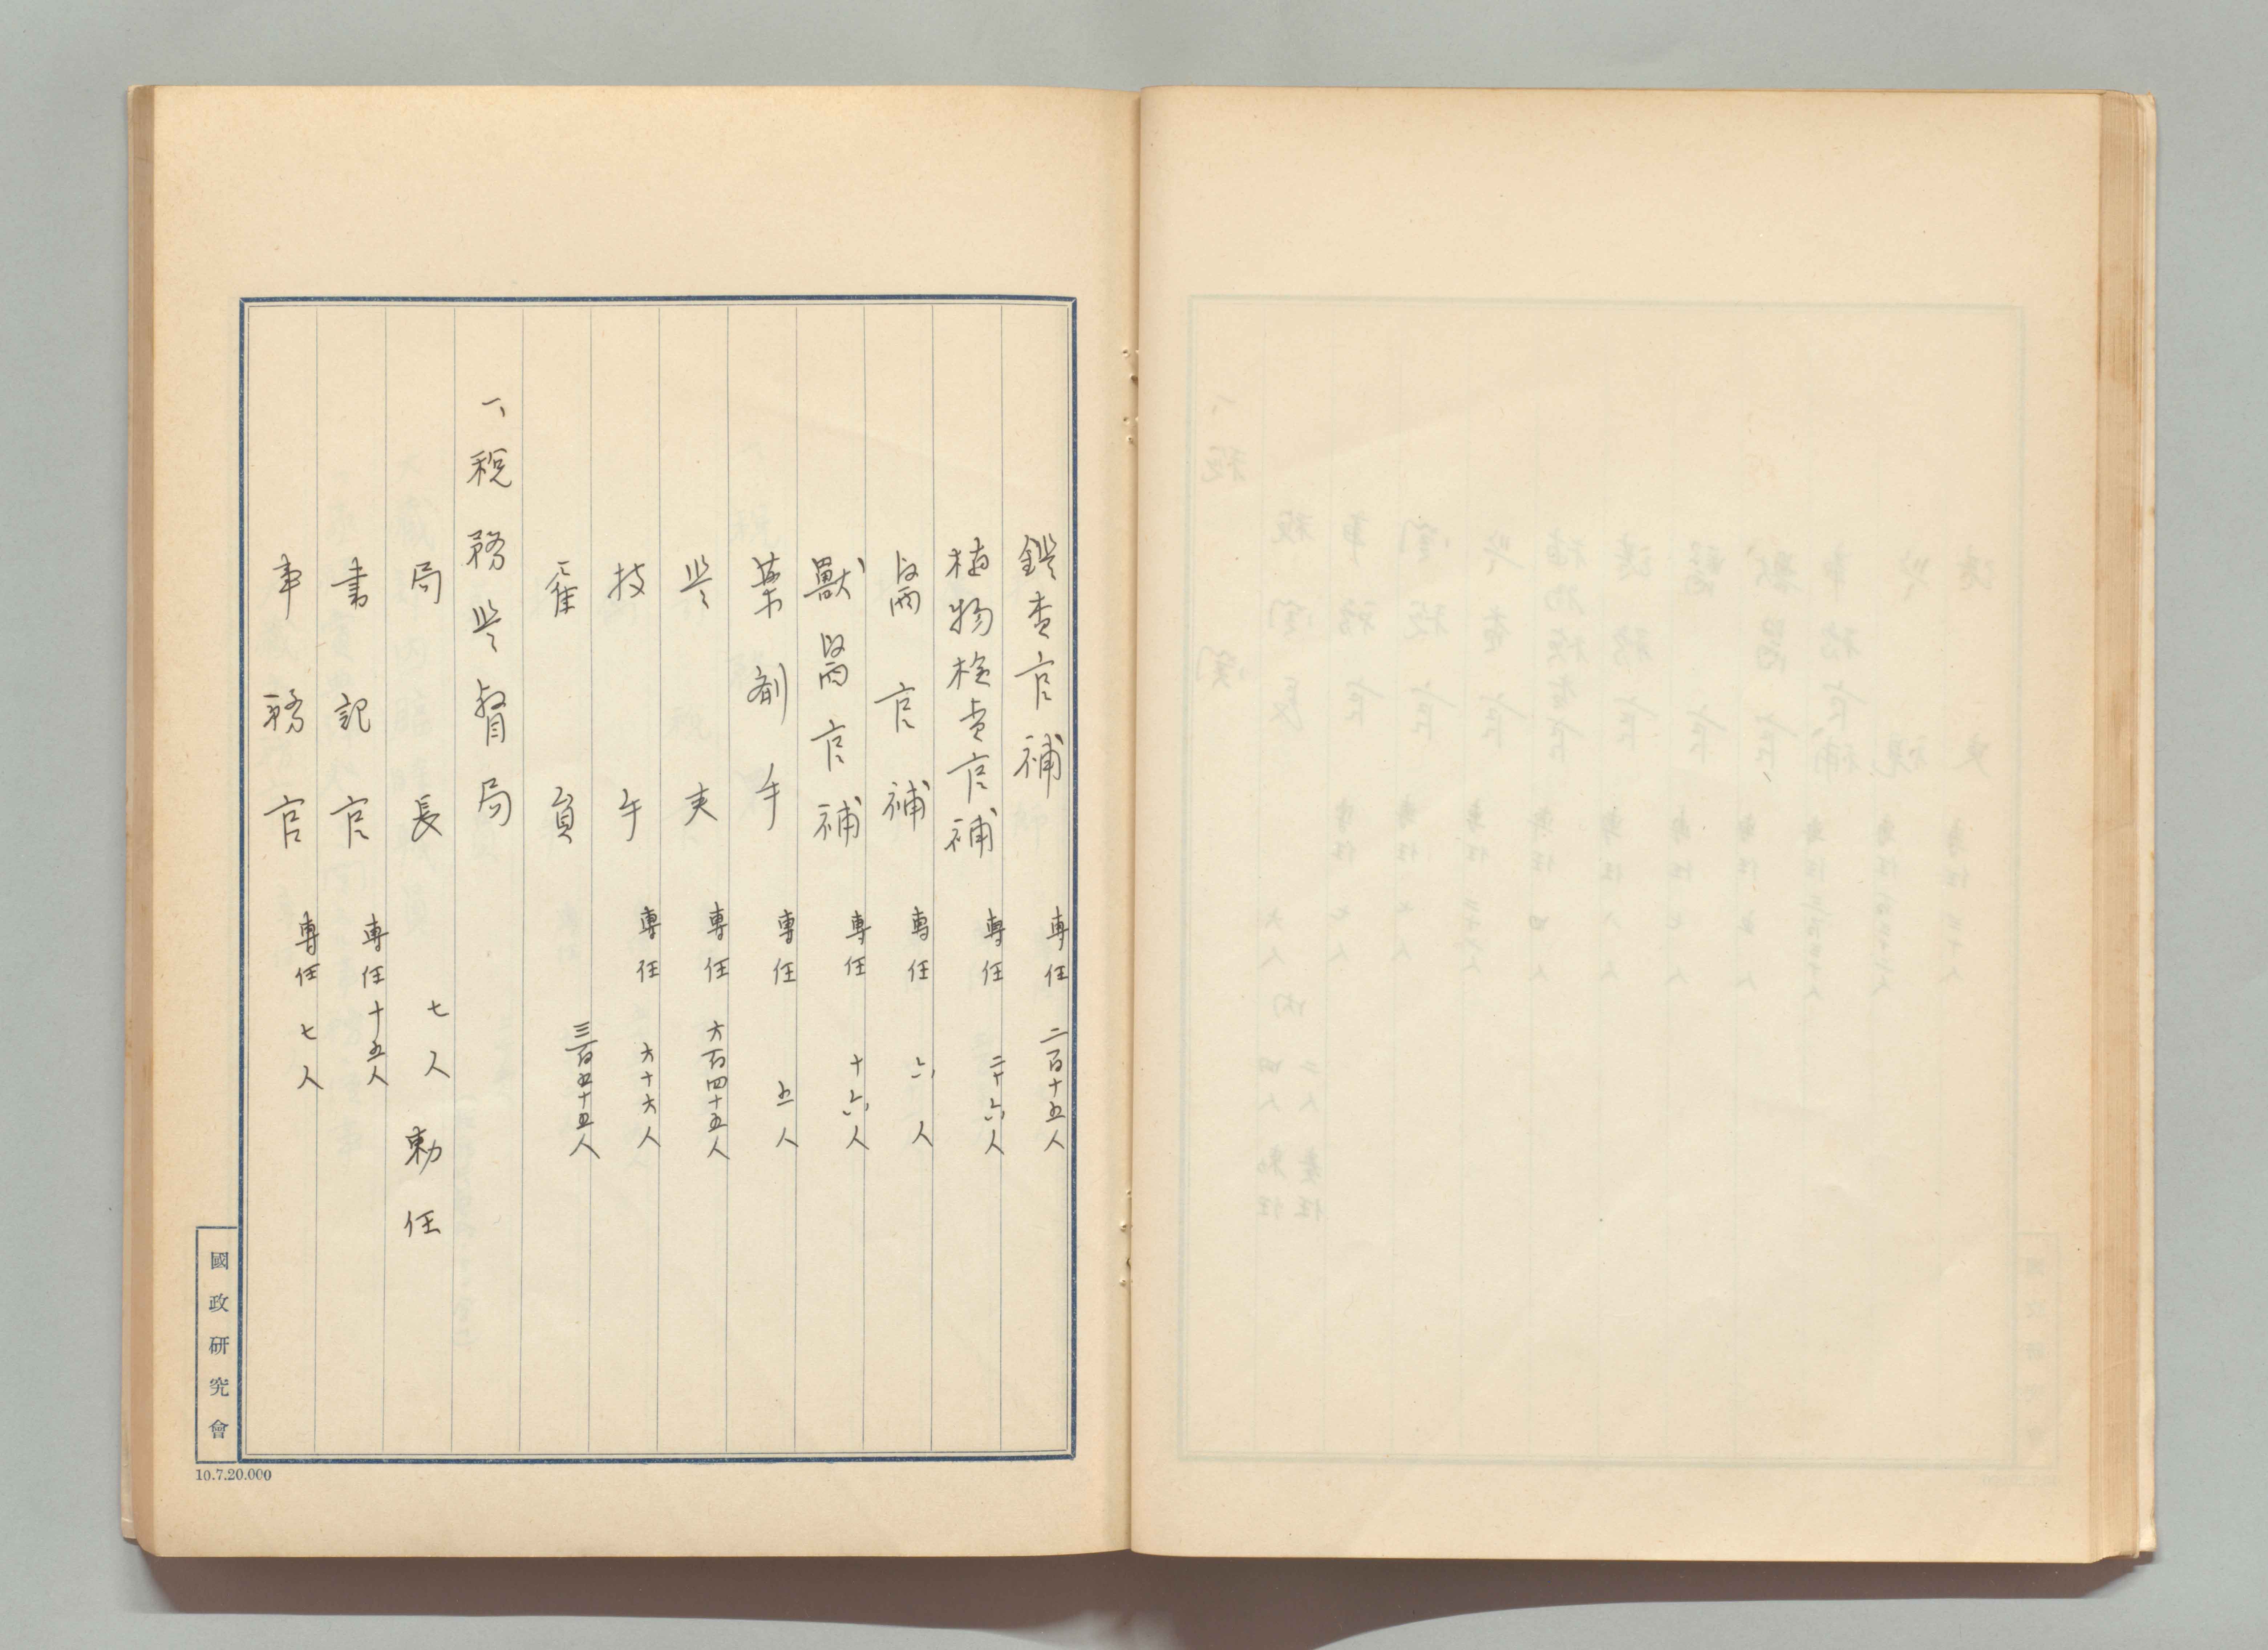 鑑査官補 專任 二百十五人
植物檢査官補 專任 二十六人
醫官補 專任 六人
獸醫官補 專任 十六人
藥劑手 專任 五人
監吏 專任 六百四十五人
技手 專任 六十六人
雇員 三百五十五人
一、税務監督局
局長 七人 勅任
書記官 專任十五人
事務官 專任 七人
國政研究會
10.7.20.000